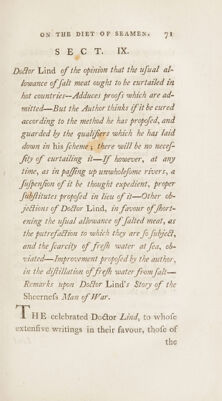 ON THE DIET OF SEAMEN. 71
SECT. IX.
Doctor Lind of the opinion that the usual al-
lowance of salt meat ought to be curtailed in
hot countries—Adduces proofs which are ad-
mitted—But the Author thinks if it be cured
according to the method he has proposed, and
guarded by the qualifiers which he has laid
down in his scheme, there will be no neces-
sity of curtailing it—If however, at any
time, as in passing up unwholesome rivers, a
suspension of it be thought expedient, proper
substitutes proposed in lieu of it—Other ob-
jections of Doctor Lind, in favour of short-
ening the usual allowance of salted meat, as
the putrefaction to which they are so subject,
and the scarcity of fresh water at sea, ob-
viated—Improvement proposed by the author,
in the distillation of fresh water from salt—
Remarks upon Doctor Lind's Story of the
Sheerness Man of War.
THE celebrated Doctor Lind, to whose
extensive writings in their favour, those of
the